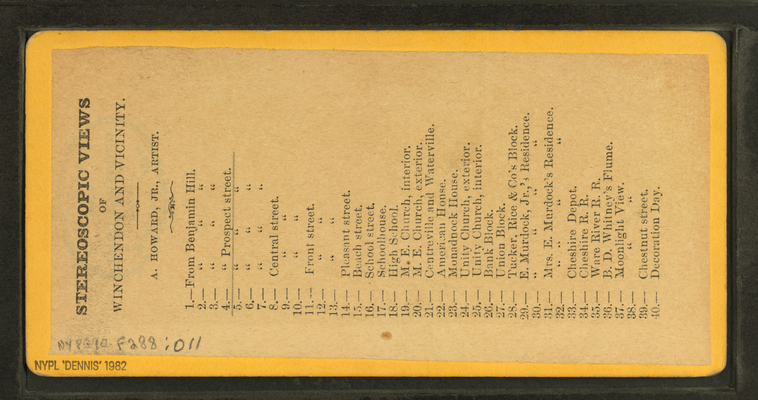 STEREOSCOPIC VIEWS
OF
WINCHENDON AND VICINITY.
A. HOWARD, JR., ARTIST.
1.—From Benjamin Hill.
2.— " " "
3.— " " "
4.— " Prospect street.
5.— " " "
6.— " " "
7.— " " "
8.— Central street.
9.— " "
10.— " "
11.— Front street.
12.— " "
13.— " "
14.— Pleasant street.
15.— Beach street.
16.— School street.
17.— Schoolhouse.
18.— High School.
19.— M. E. Church, interior.
20.— M. E. Church, exterior.
21.— Centreville and Waterville.
22.— American House.
23.— Monadnock House.
24.— Unity Church, exterior.
25.— Unity Church, interior.
26.— Bank Block.
27.— Union Block.
28.— Tucker, Rice & Co's Block.
29.— E. Murdock, Jr.,'s Residence.
30.— " " " "
31.— Mrs. E. Murdock's Residence.
32.— " " " "
33.— Cheshire Depot.
34.— Cheshire R. R.
35.— Ware River R. R.
36.— B. D. Whitney's Flume.
37.— Moonlight View.
38.— " "
39.— Chestnut street.
40.— Decoration Day.
F288 :011
NYPL 'DENNIS' 1982